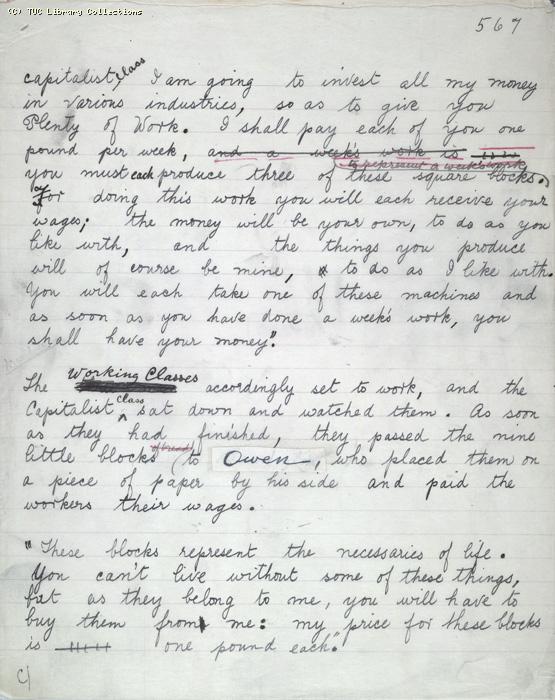 (C) TUC Library Collections
567
capitalist class I am going to invest all my money
in various industries, so as to give you
Plenty of Work. I shall pay each of you one
pound per week, and a week's work is
to represent a week's work
you must each produce three of these square blocks.
For doing this work you will each receive your
wages; the money will be your own, to do as you
like with, and the things you produce
will of course be mine, to do as I like with.
You will each take one of these machines and
as soon as you have done a week's work, you
shall have your money".
The Working Classes accordingly set to work, and the
Capitalist Class sat down and watched them. As soon
as they had finished, they passed the nine
little blocks (of bread) to Owen, who placed them on
a piece of paper by his side and paid the
workers their wages.
"These blocks represent the necessaries of life.
You can't live without some of these things,
but as they belong to me, you will have to
buy them from me: my price for these blocks
is one pound each".
c/